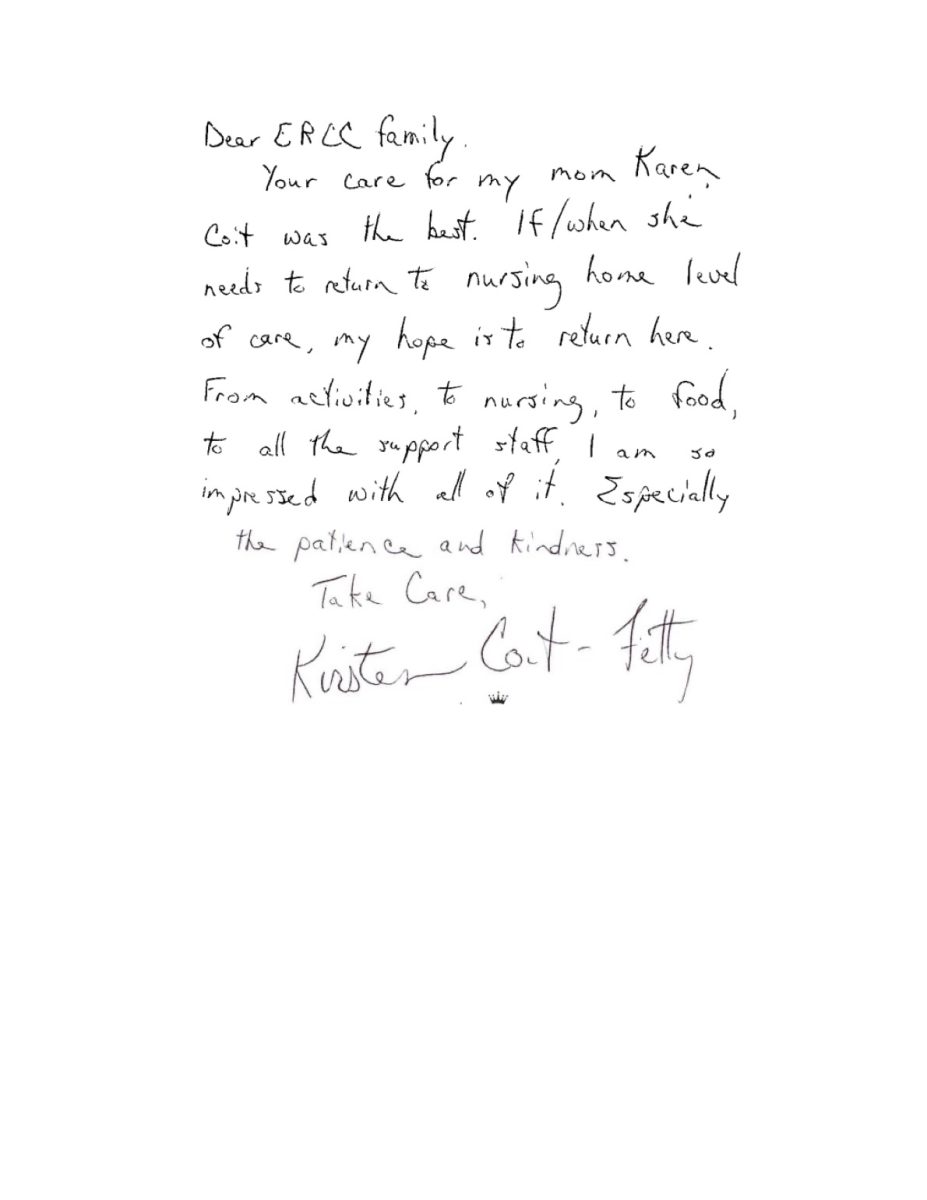 Dear ERCC family.
Your care for my mom Karen
Coit was the best. If/when she
needs to return to nursing home level
of care, my hope is to return here.
From activities, to nursing, to food,
to all the support staff, I am so
impressed with all of it. Especially
the patience and kindness.
Take Care,
Kirsten Coit-Fetty